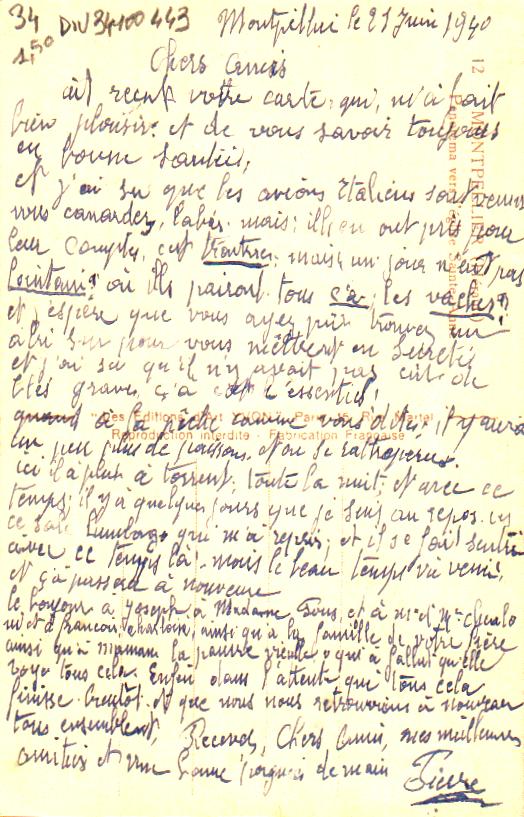 34 DIV 34100 443 Montpellier le 21 Juin 1940
1,50
Chers Amis
ait recut votre carte, qui, m'a fait
bien plaisir. et de vous savoir toujours
en bonne santée,
et j'ai su que les avions Italiens sont venus
vous canarder, labas. mais; ills en ont pris pour
leur compte, cet traitres; mais un jour n'est pas
lointain! où ills pairont tous ça, les vaches!
et j'espère que vous ayez pût trouver un
abri sur pour vous mettrent en Sécuritée
et j'ai su qu'il n'y avait pas eut de
blés grave, ç'a c'est l'essentiel!
quand à la pêche comme vous dites, il y aura
un peu plus de poissons. et on se rattrapera.
ici il à plut à torrent, toute la nuit, et avec ce
temps, il y à quelques jours que je suis au repos.
ce sale Lumbago qui m'a repris; et il se fait sentir
avec ce temps là! mais le beau temps va venir,
et ç'à passera à nouveau
le bonjour à Joseph à Madame et à
et à francois ainsi qu'à la famille de votre frère
ainsi qu'à maman la pauvre vieille qui à fallut qu'elle
voye tous cela. Enfin dans l'attente que tous cela
finisse bientôt. et que nous nous retrouvions à nouveau
tous ensemblent, Recevez, Chers Amis, mes meilleures
amitiés et une bonne poignée de main
Pierre
12 MONTPELLIER
Panorama vers l'Église Sainte-Anne
"Les Editions d'Art YVON" Paris-15, Rue Martel
Reproduction interdite - Fabrication Française